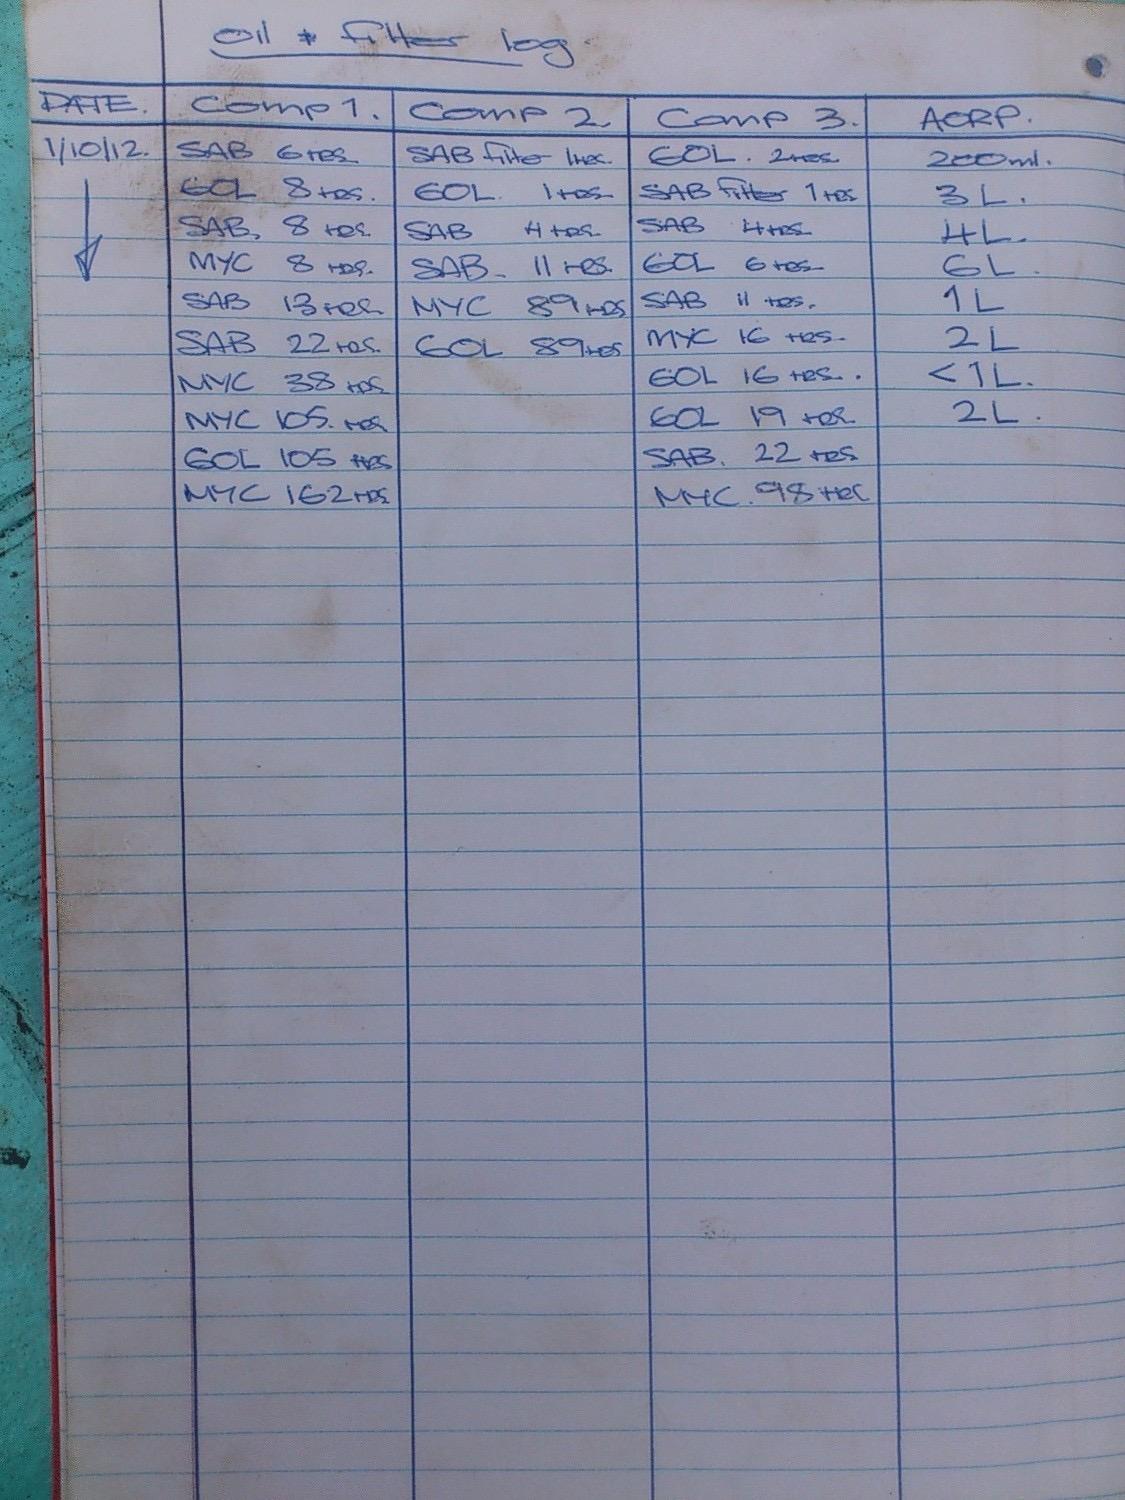 Oil + filter log.
DATE. Comp 1. Comp 2 Comp 3. ACRP.
1/10/12. SAB 6 HRS. SAB filter 1HRS. GOL. 2HRS. 200ml.
GOL 8 HRS. GOL. 1HRS. SAB filter 1 HRS 3 L.
SAB. 8 HRS. SAB 4 HRS. SAB 4HRS. 4L.
MYC 8 HRS. SAB. 11 HRS. GOL 6 HRS. 6L.
SAB 13 HRS. MYC 89 HRS SAB 11 HRS. 1L
SAB 22 HRS. GOL 89HRS MYC 16 HRS. 2L
MYC 38 HRS. GOL 16 HRS. <1L.
MYC 105. HRS GOL 19 HRS. 2L.
GOL 105 HRS SAB. 22 HRS
MYC 162HRS MYC. 98 HRS